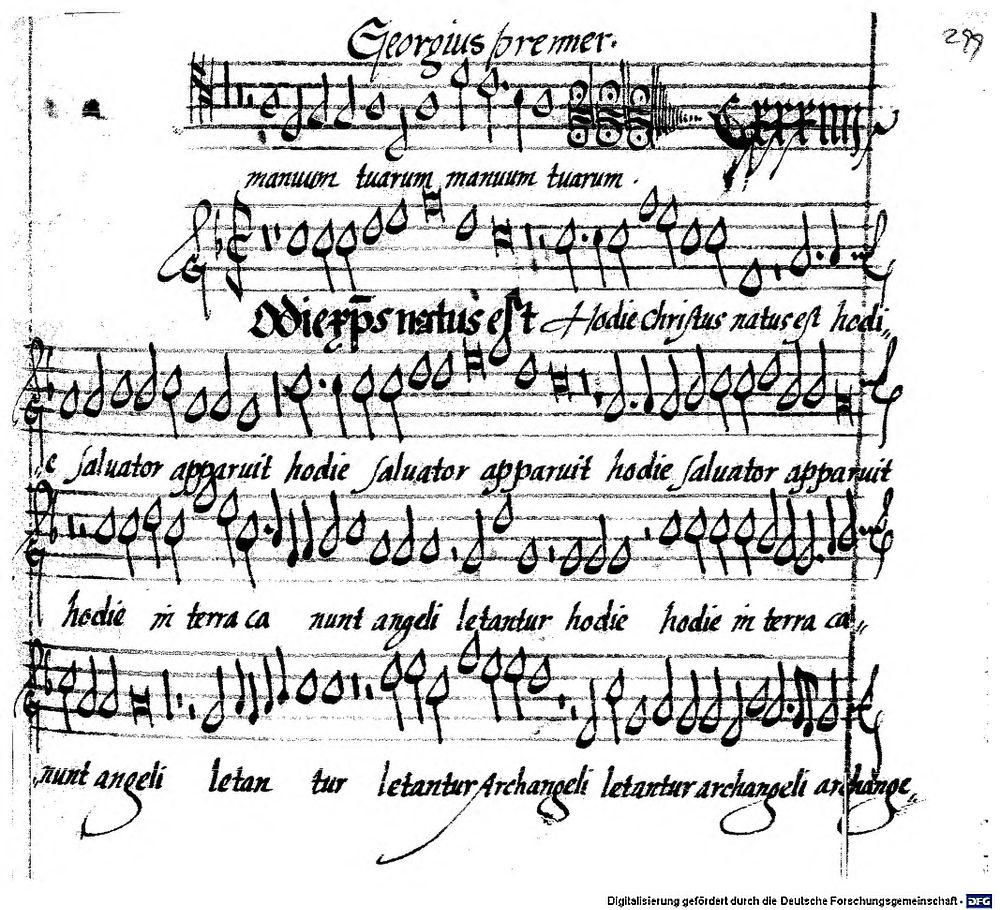 Georgius prenner.
299
manuum tuarum manuum tuarum.
Odie xp̄s natus est Hodie christus natus est hodi,,
,,e saluator apparuit hodie saluator apparuit hodie saluator apparuit
hodie in terra ca nunt angeli letantur hodie hodie in terra ca,,
,,nunt angeli letan tur letantur Archangeli letantur archangeli archange,,
Digitalisierung gefördert durch die Deutsche Forschungsgemeinschaft - DFG